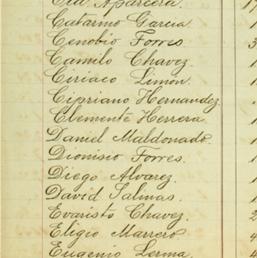 Cid Aparcera.
Catarino Garcia
Cenobio Torres
Camilo Chavez.
Ceriaco Limon.
Cipriano Hernandez.
Clemente Herrera
Daniel Maldonado.
Dionisio Torres.
Diego Alvarez.
David Salinas.
Evaristo Chavez.
Eligio Marrero
Eugenio Lerma